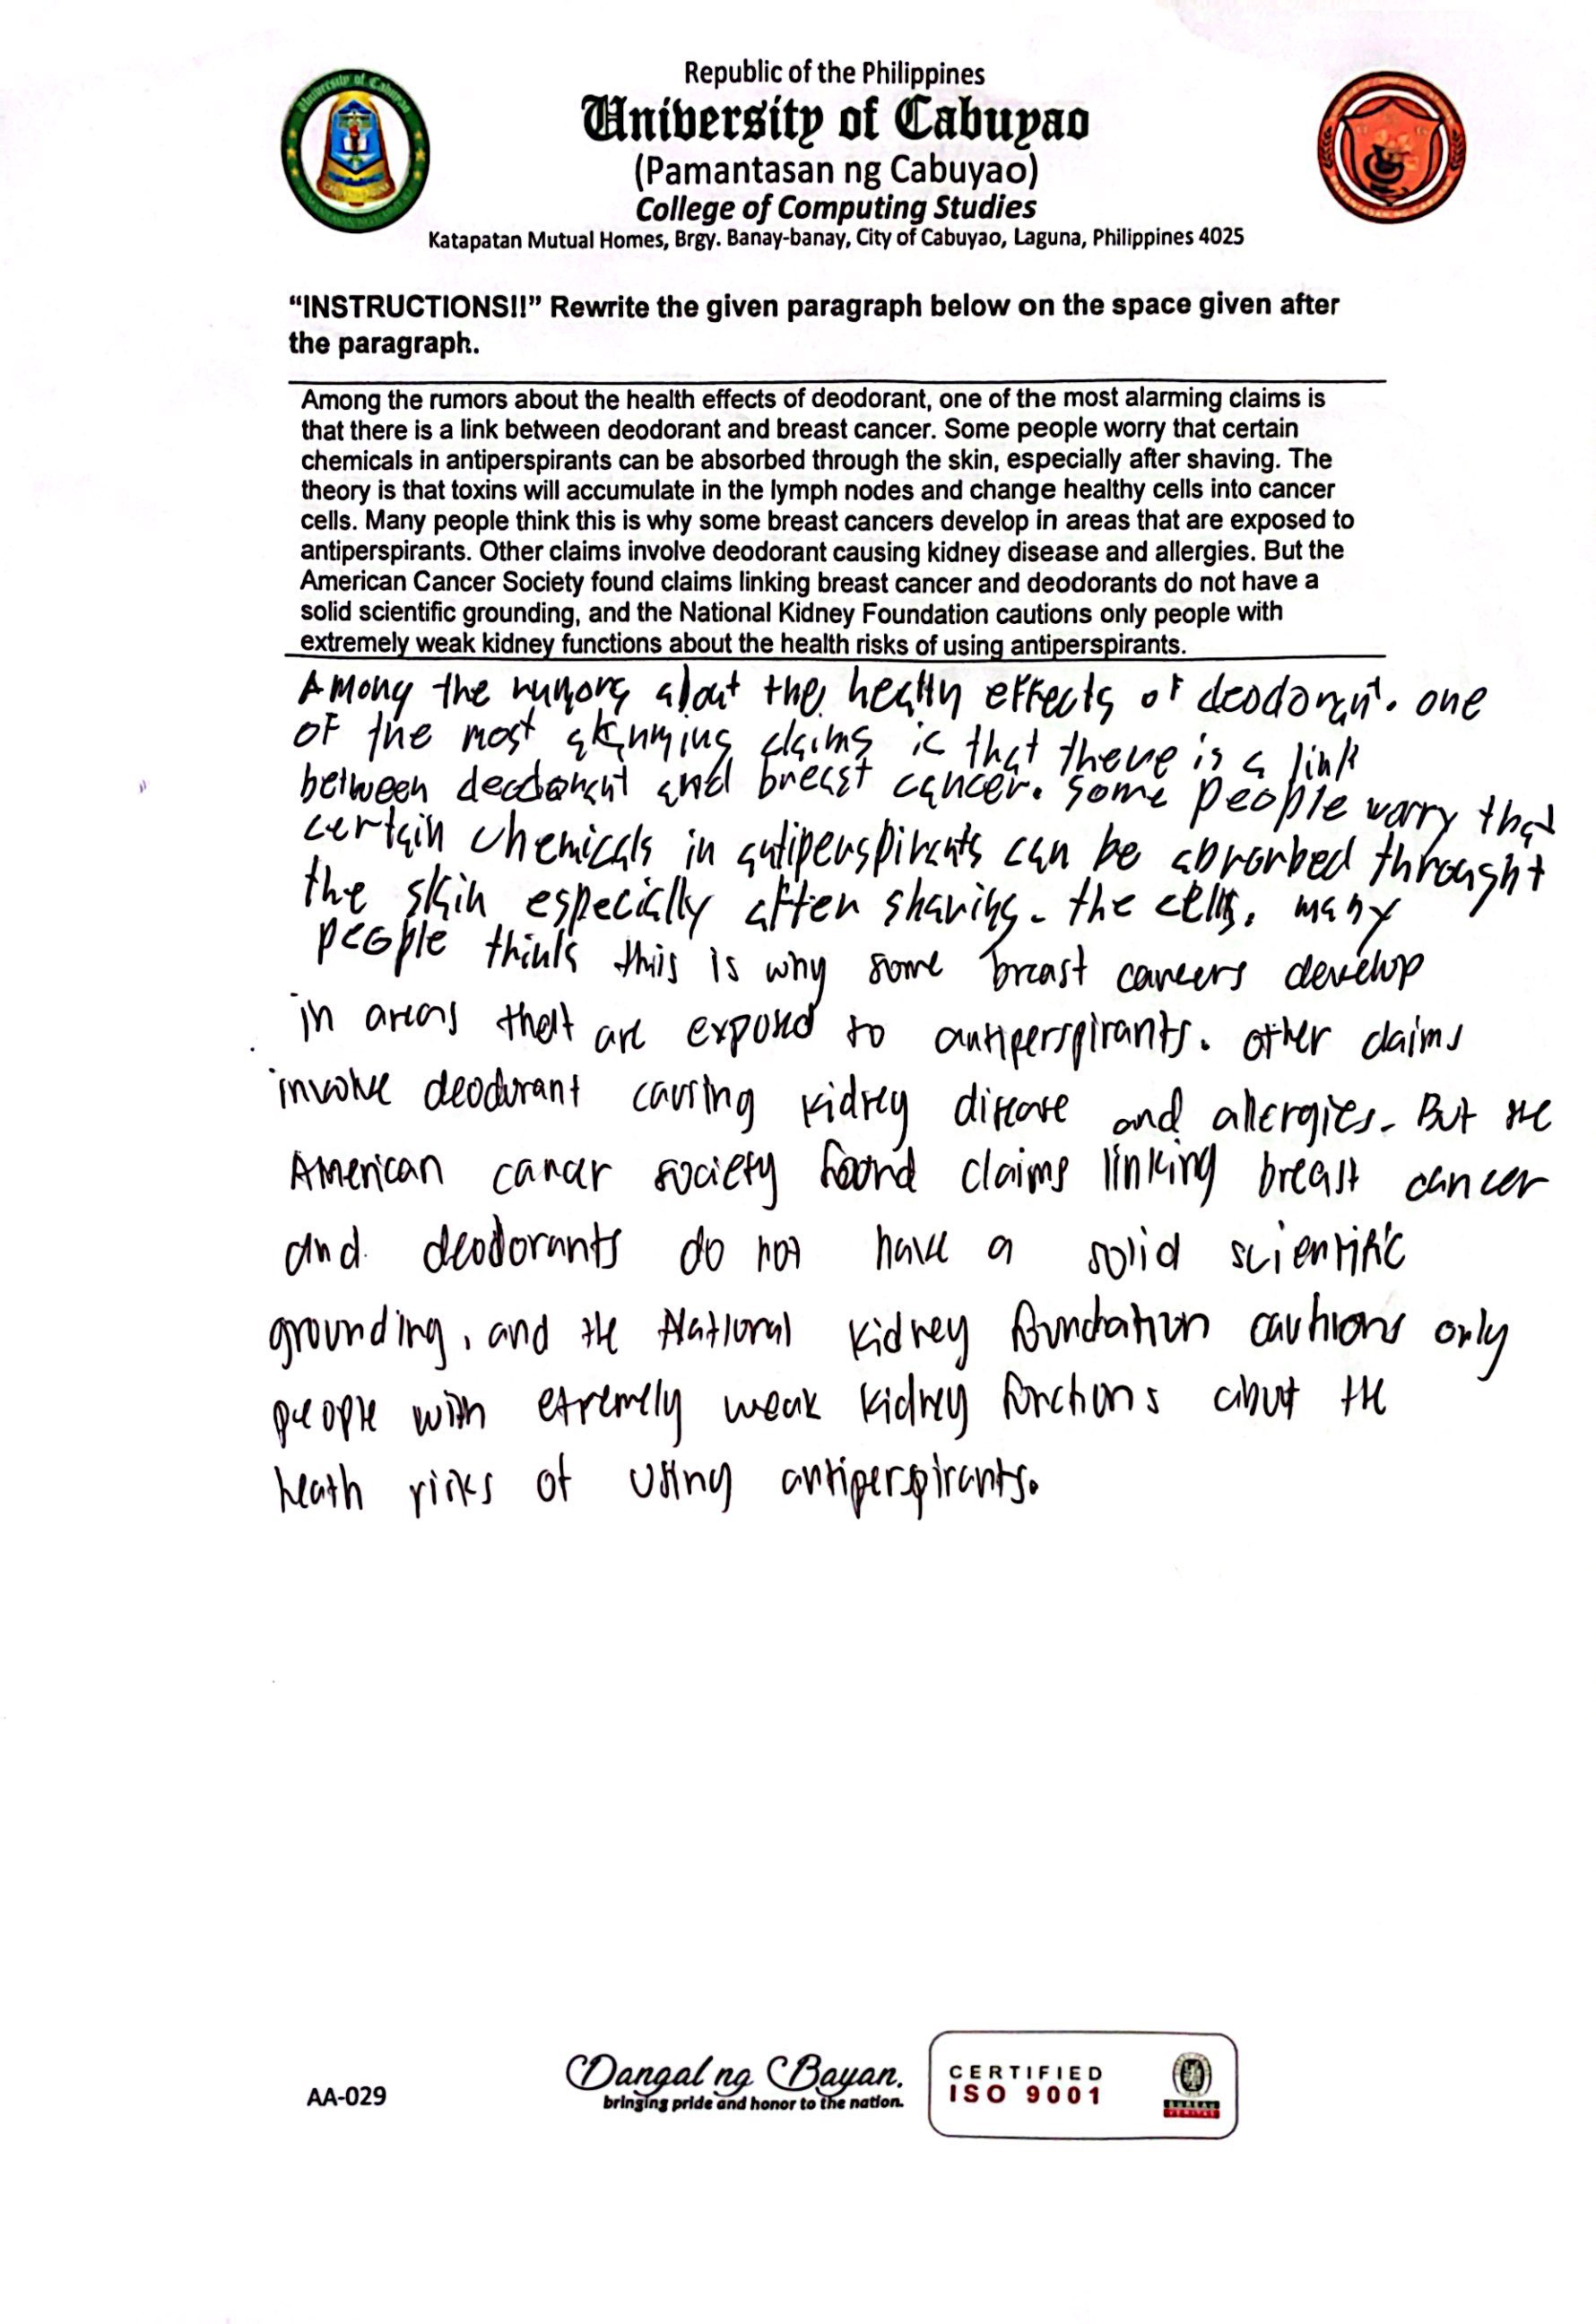 Republic of the Philippines
University of Cabuyao
(Pamantasan ng Cabuyao)
College of Computing Studies
Katapatan Mutual Homes, Brgy. Banay-banay, City of Cabuyao, Laguna, Philippines 4025
“INSTRUCTIONS!!” Rewrite the given paragraph below on the space given after
the paragraph.
Among the rumors about the health effects of deodorant, one of the most alarming claims is
that there is a link between deodorant and breast cancer. Some people worry that certain
chemicals in antiperspirants can be absorbed through the skin, especially after shaving. The
theory is that toxins will accumulate in the lymph nodes and change healthy cells into cancer
cells. Many people think this is why some breast cancers develop in areas that are exposed to
antiperspirants. Other claims involve deodorant causing kidney disease and allergies. But the
American Cancer Society found claims linking breast cancer and deodorants do not have a
solid scientific grounding, and the National Kidney Foundation cautions only people with
extremely weak kidney functions about the health risks of using antiperspirants.
Among the rumors about the health effects of deodorant. one
of the most alarming claims is that there is a link
between deodorant and breast cancer. some people worry that
certain chemicals in antiperspirants can be absorbed throught
the skin especially after shaving. the cells. many
people think this is why some breast cancers develop
in areas that are exposed to antiperspirants. other claims
involve deodorant causing kidney disease and allergies. But the
American cancer society found claims linking breast cancer
and deodorants do not have a solid scientific
grounding, and the National kidney foundation cautions only
people with etremely weak kidney functions about the
heath risks of using antiperspirants.
AA-029
Dangal ng Bayan.
bringing pride and honor to the nation.
CERTIFIED
ISO 9001
BUREAU
VERITAS